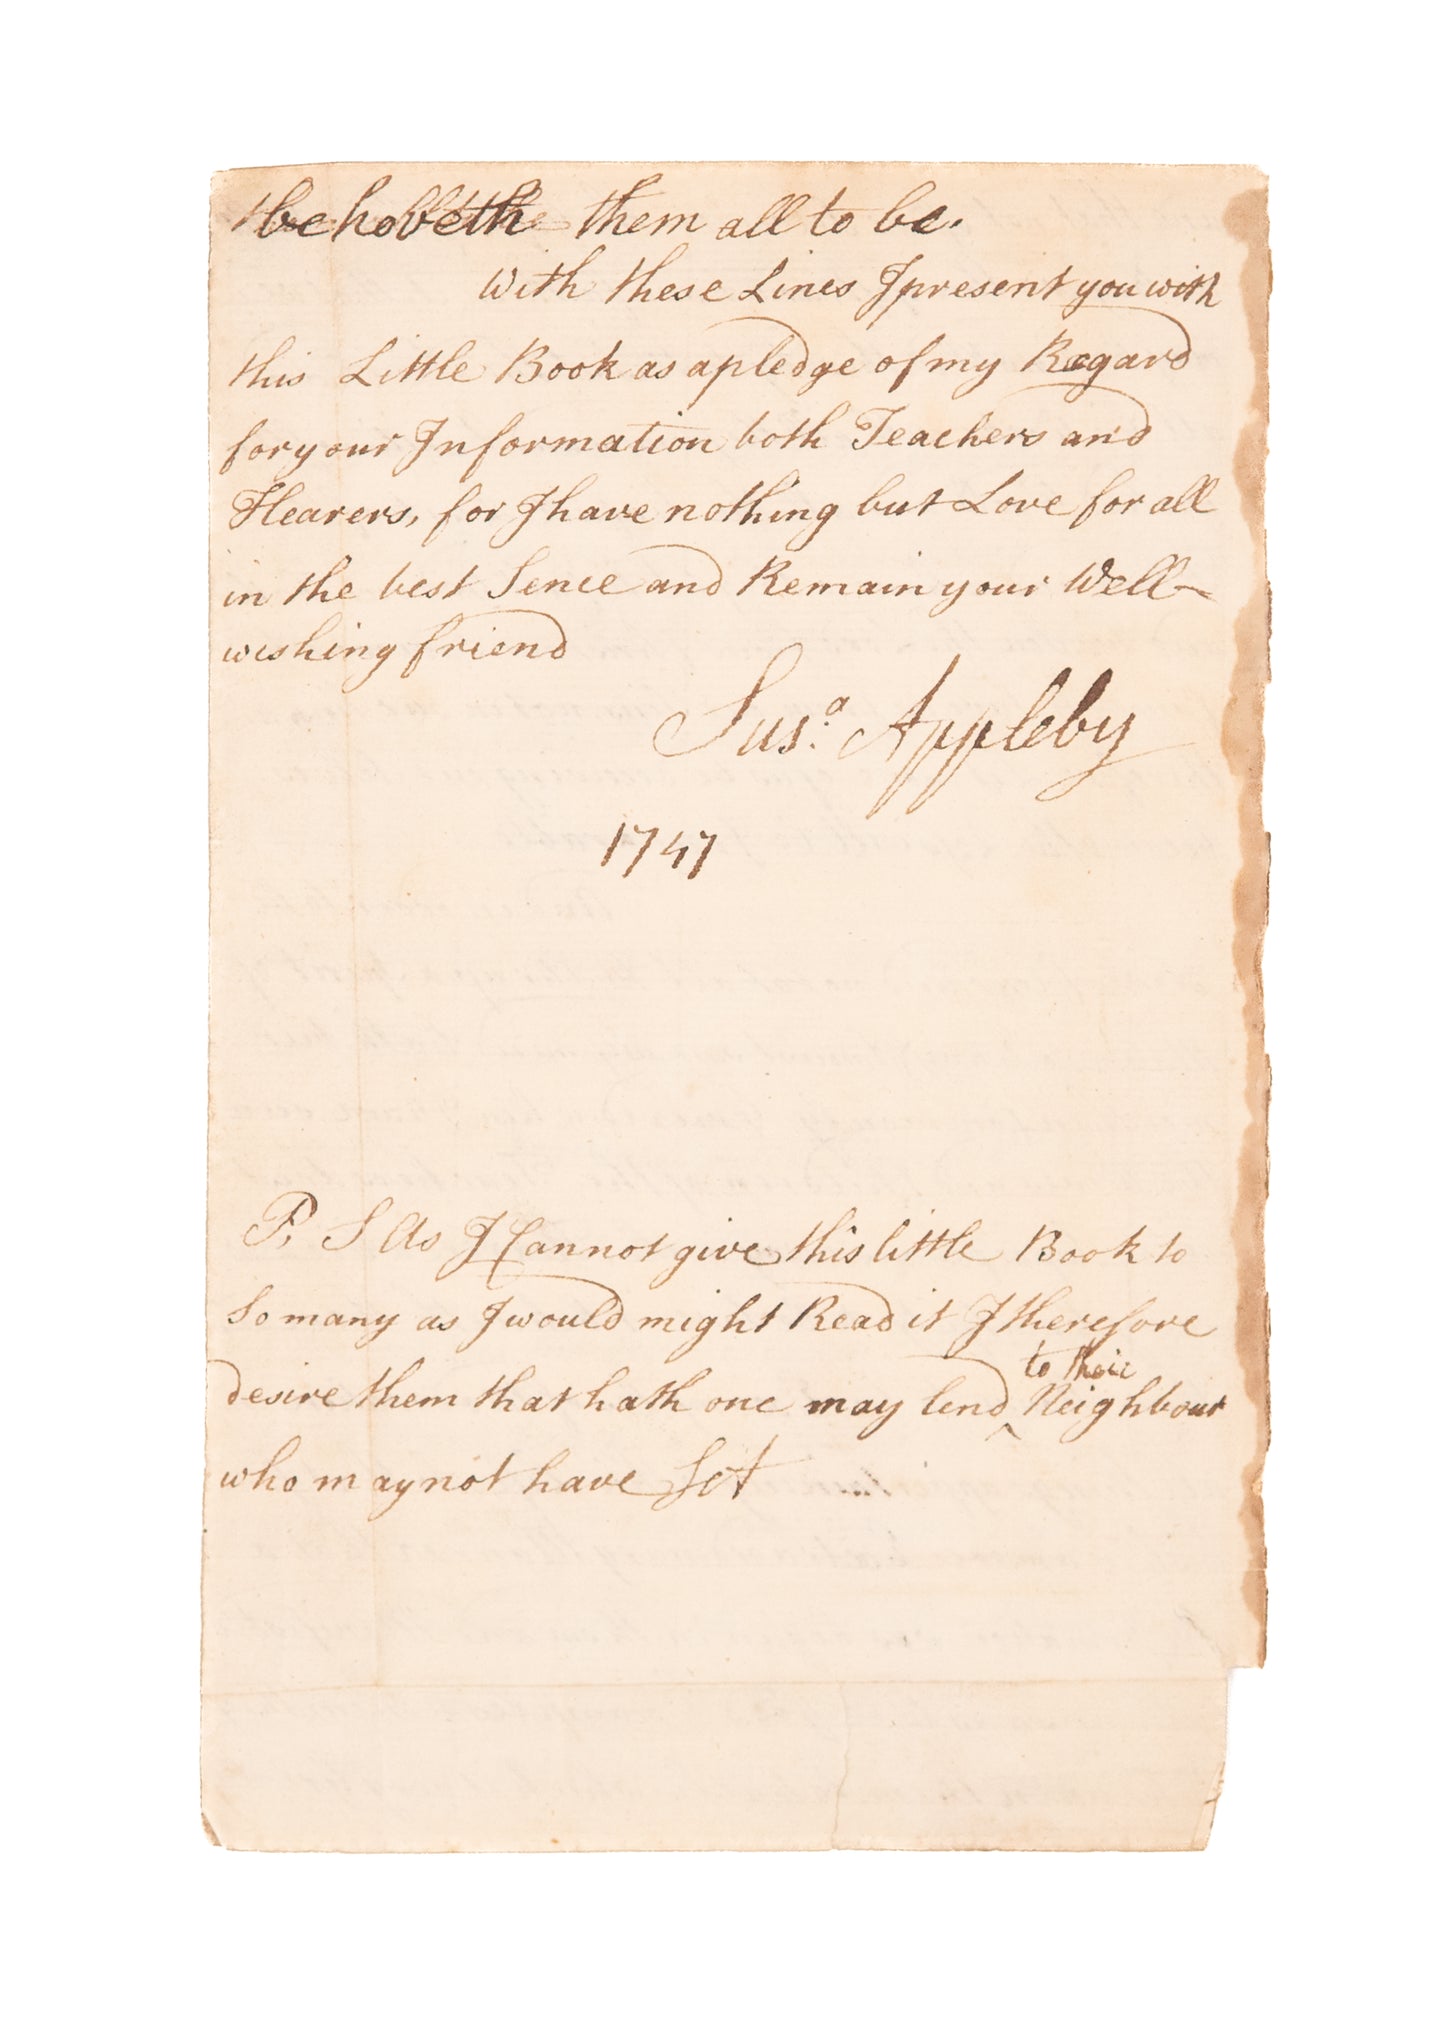 behoveth them all to be.
With these Lines I present you with
this Little Book as a pledge of my Regard
for your Information both Teachers and
Hearers, for I have nothing but Love for all
in the best Sence and Remain your Well-
wishing friend
Sus.a Appleby
1747
P, S As I Cannot give this little Book to
So many as I would might Read it I therefore
desire them that hath one may lend ^ to their Neighbour
who may not have